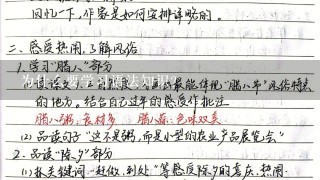 回忆一下,作家是如何安排详略的。
二、感受热闹,了解风俗
1.学习"腊八"部分
为什么要学习语法知识
最能体现"腊八节"风俗特点
的地方。结合自己过年的感受作批注
腊八粥:食材多 腊八蒜:色味双美
(2)品读句子"这不是粥,而是小型的农业产品展览会"
2.品读"除夕"部分
(1)抓关键词"赶做、到处"等感悟除夕的喜庆、热闹